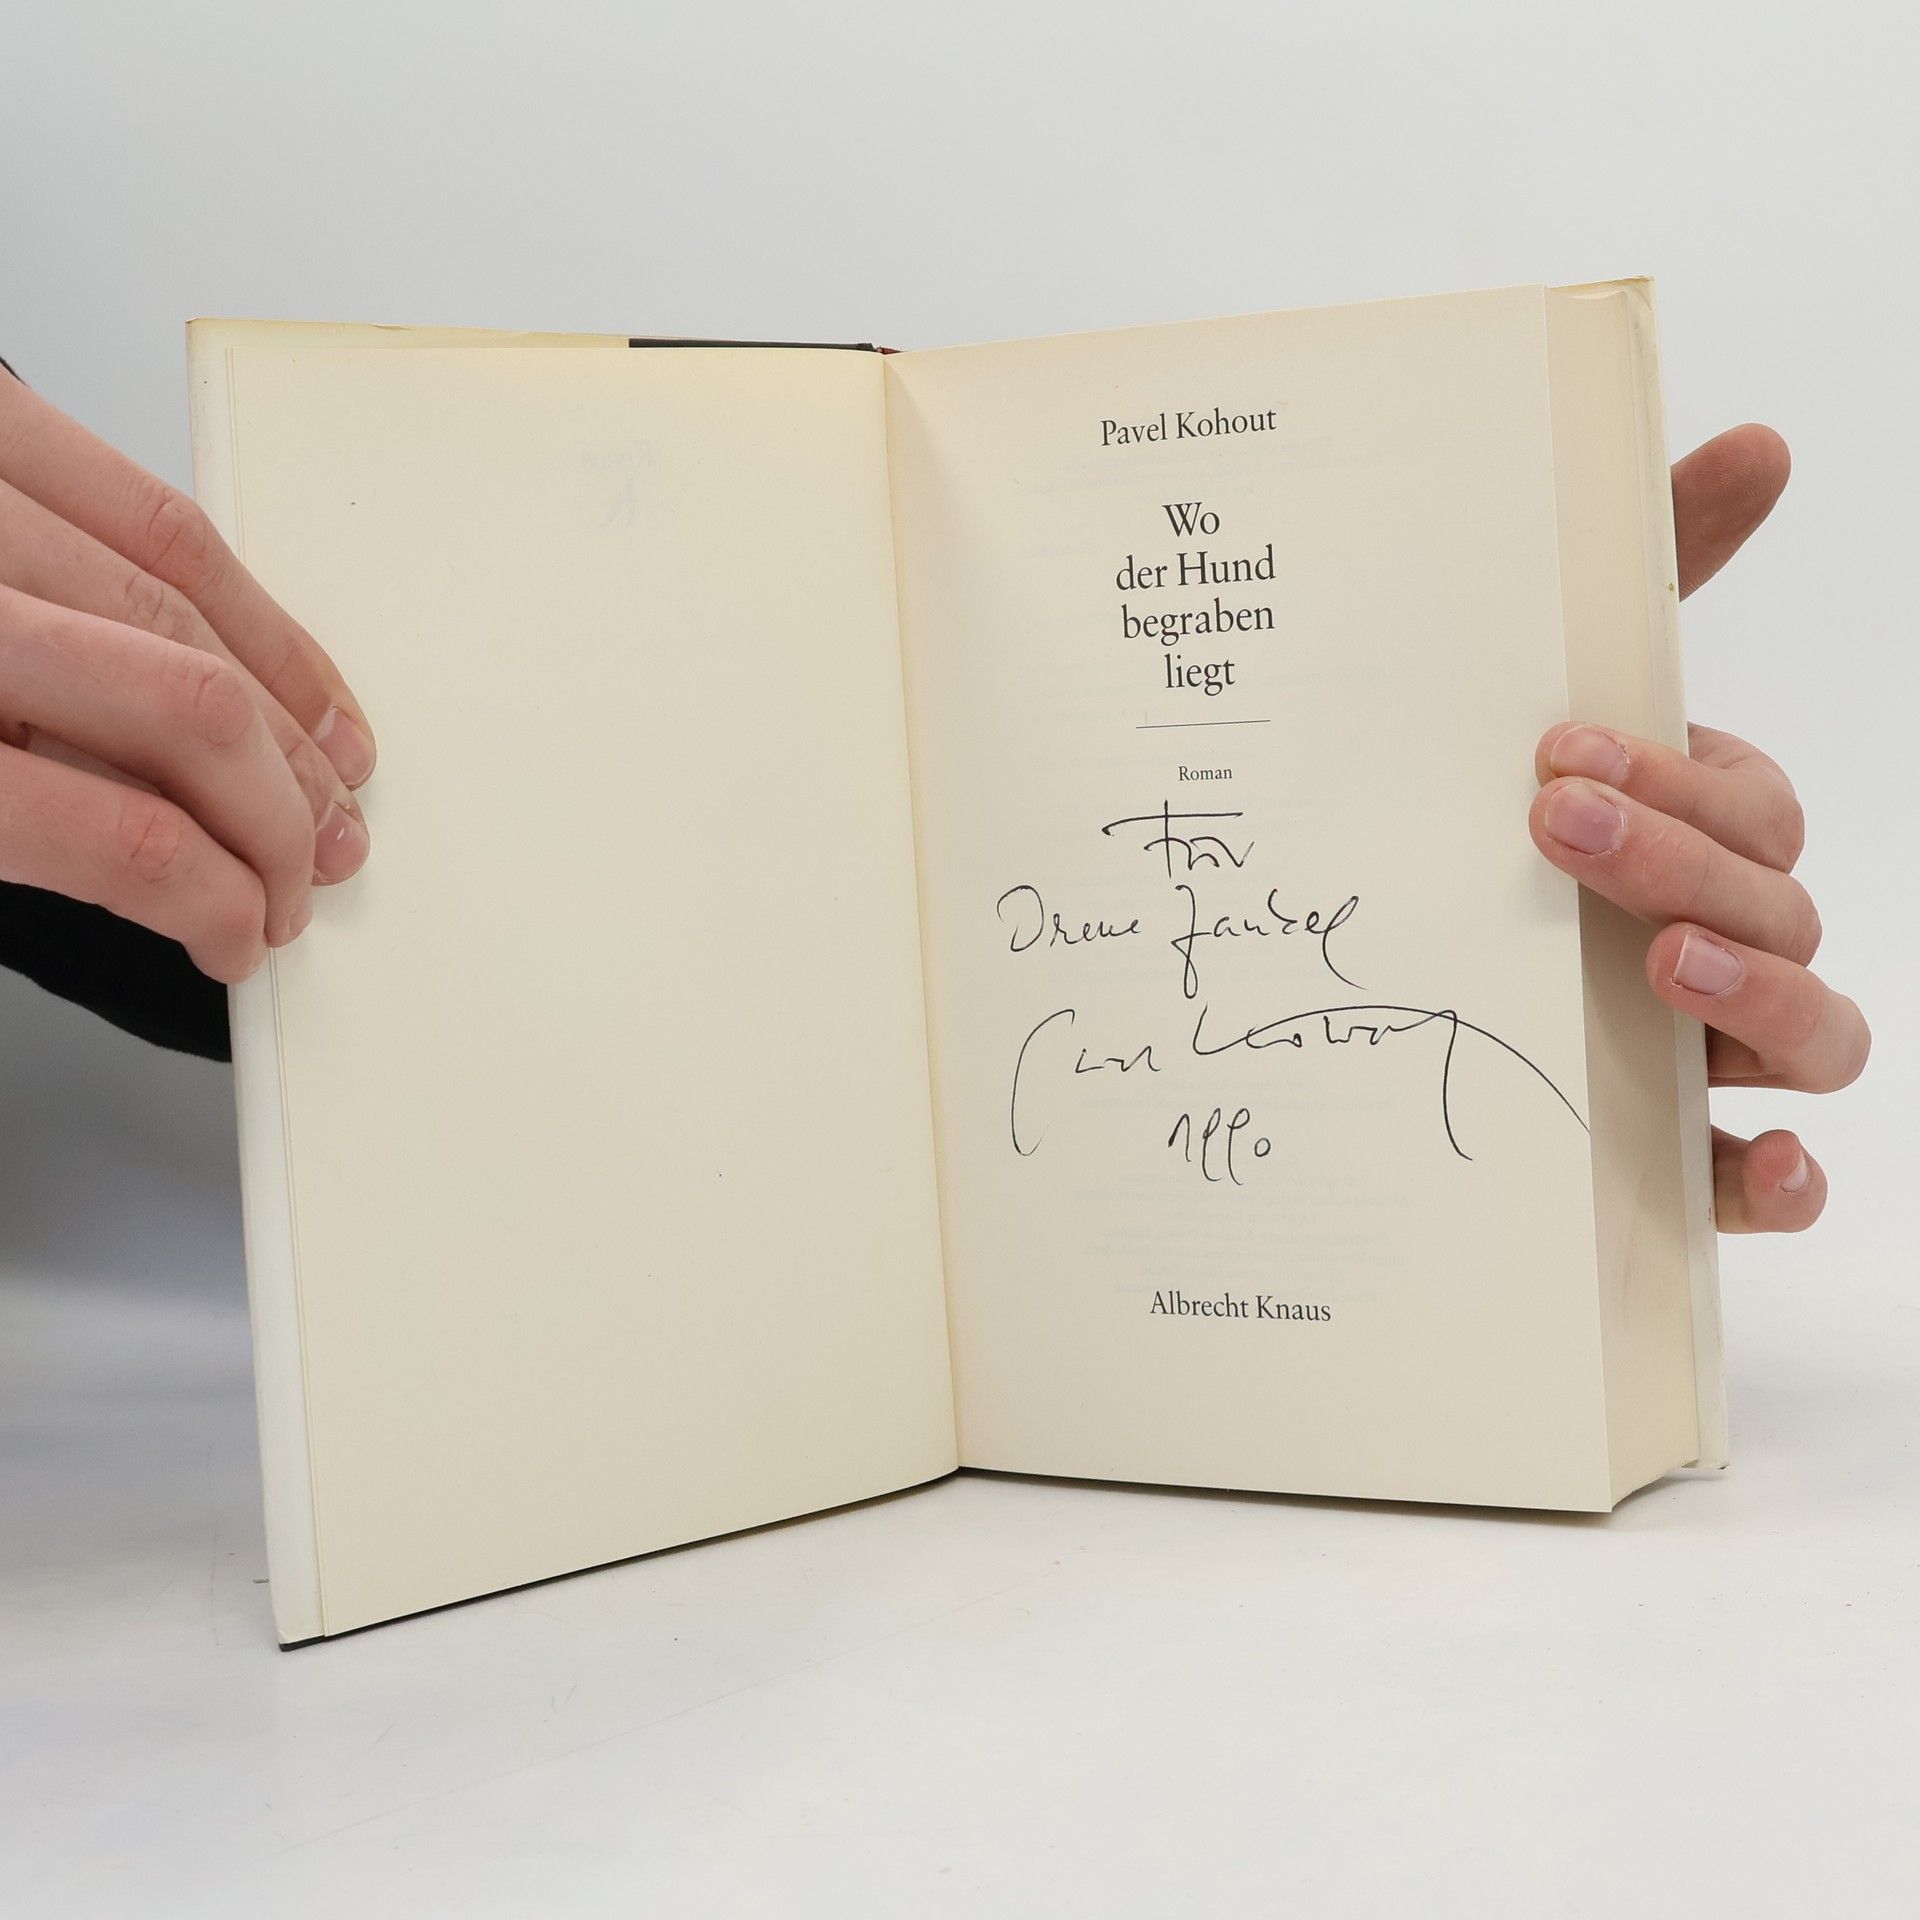 Pavel Kohout
Wo
der Hund
begraben
liegt
Roman
Für
Pavel Kohout
1990
Albrecht Knaus